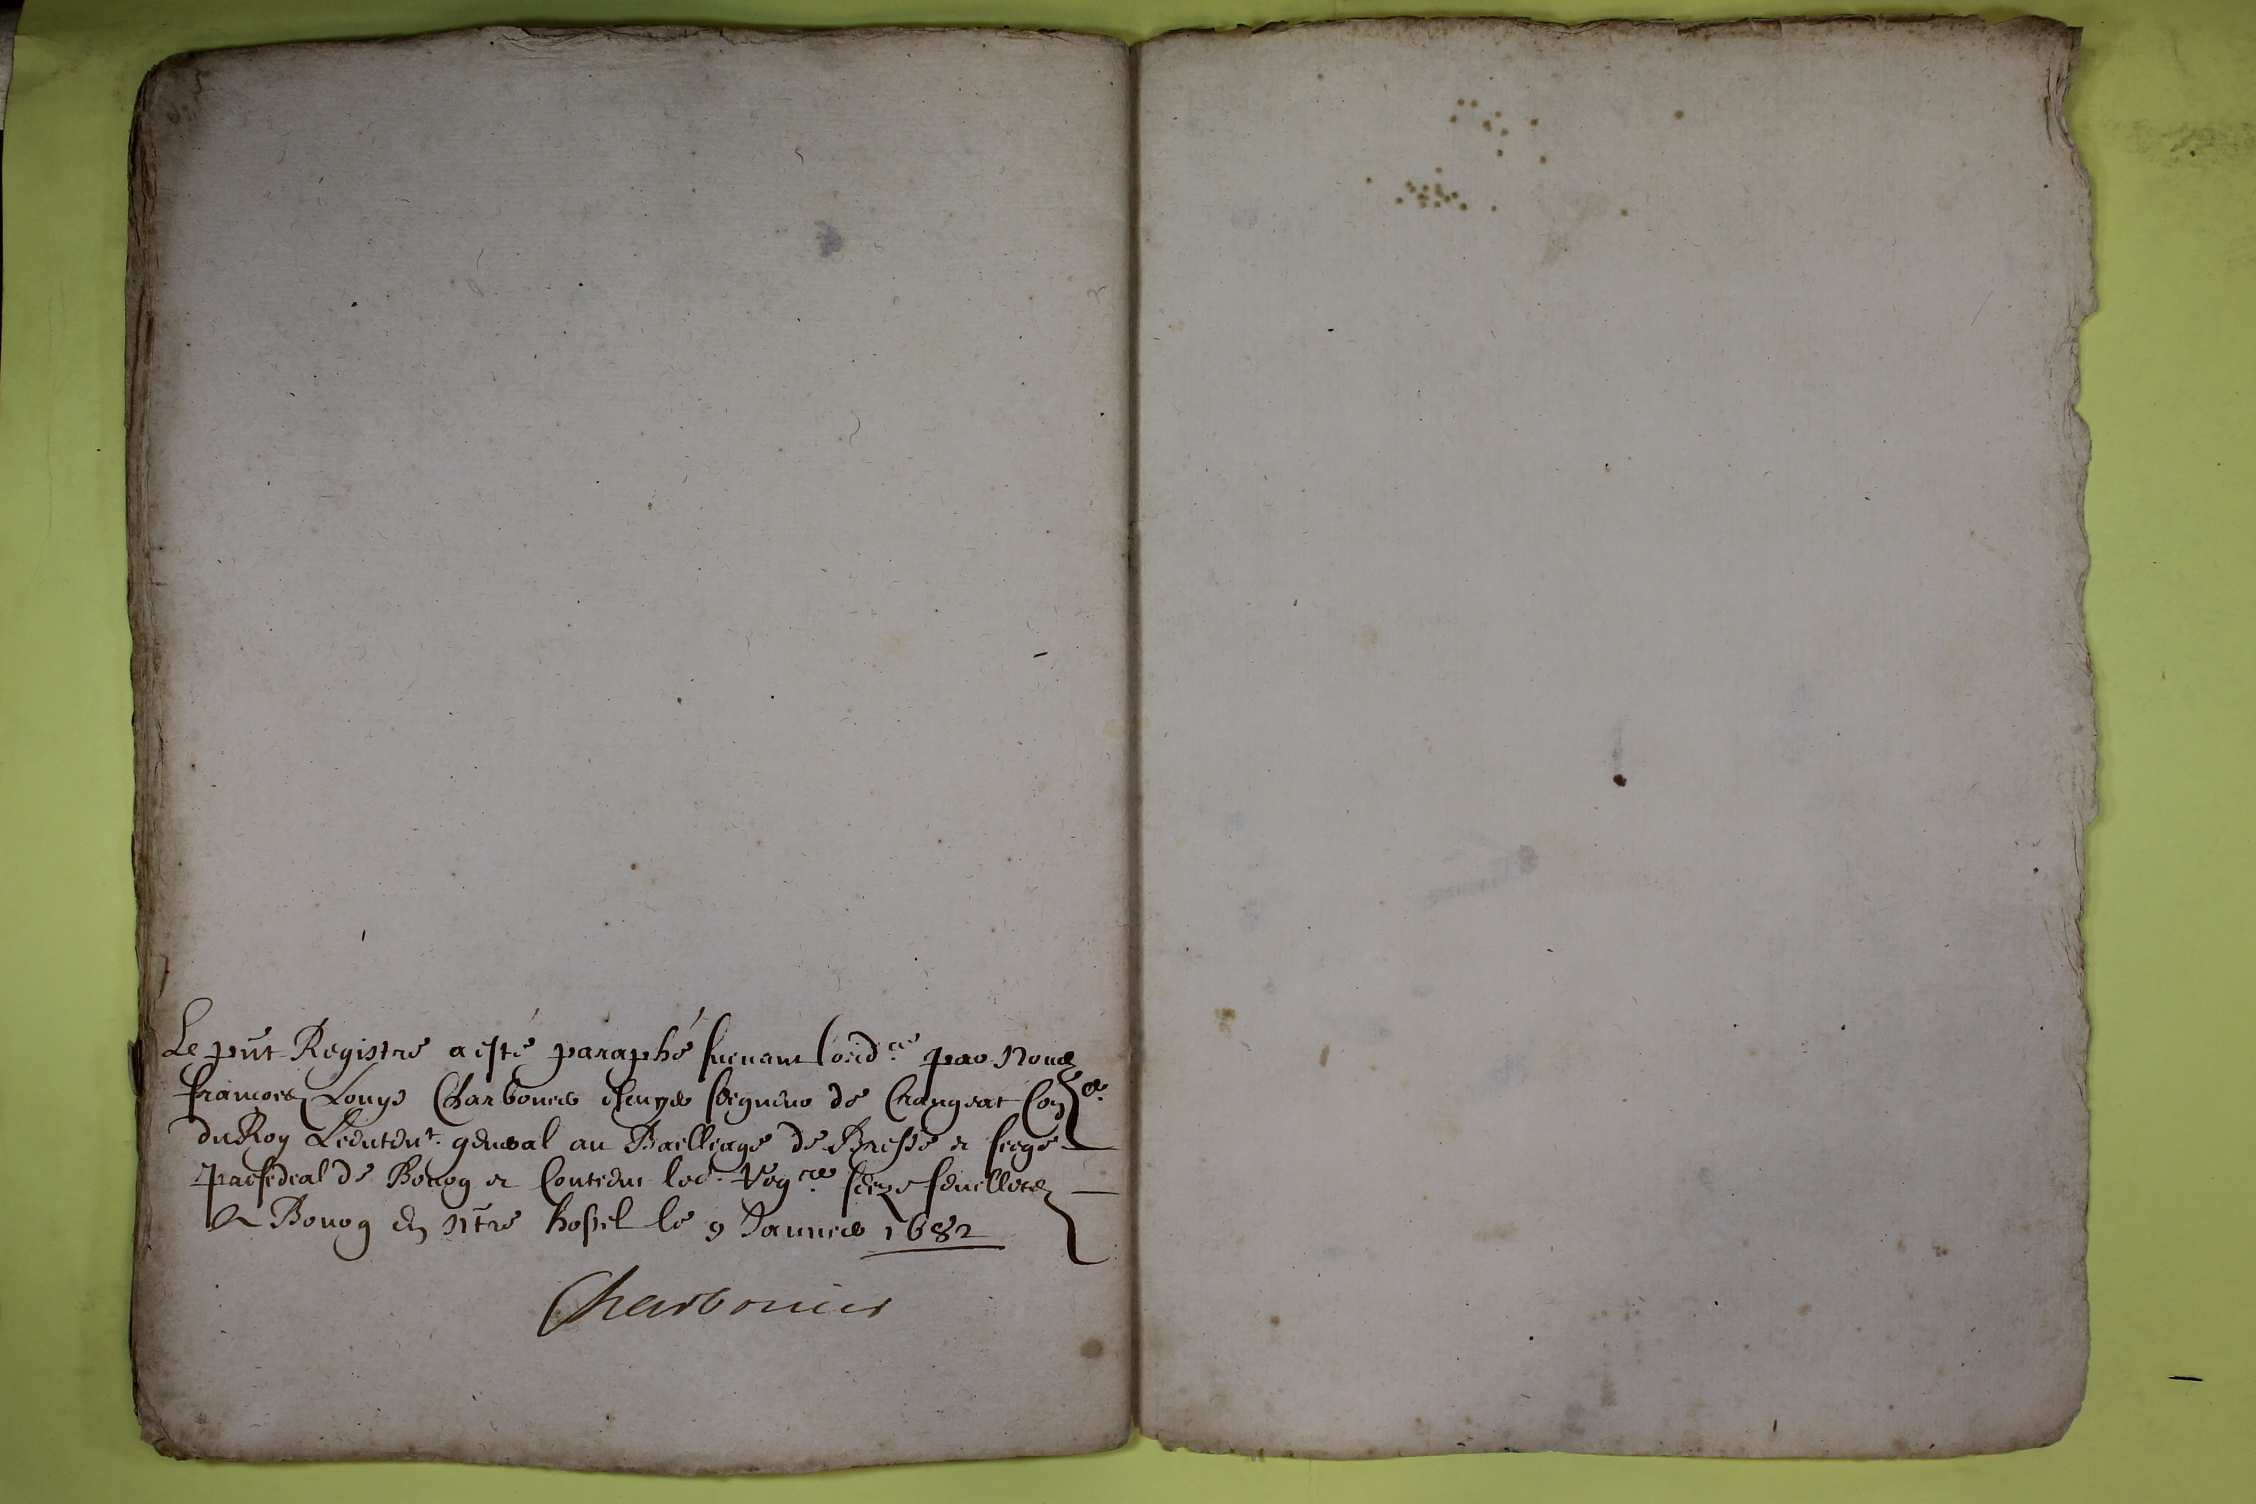 Le pnt Registre a esté paraphé suivant l'ord.ce par Nous
francois Louys Charbonier escuyer seigneur de Crangeat Con.er
du Roy Lieuten.t general au Bailliage de Bresse et siege
presidial de Bourg et contient led. Reg.re seize feuilletz
A Bourg en ntre hostel le 9 Janvier 1682
Charbonier